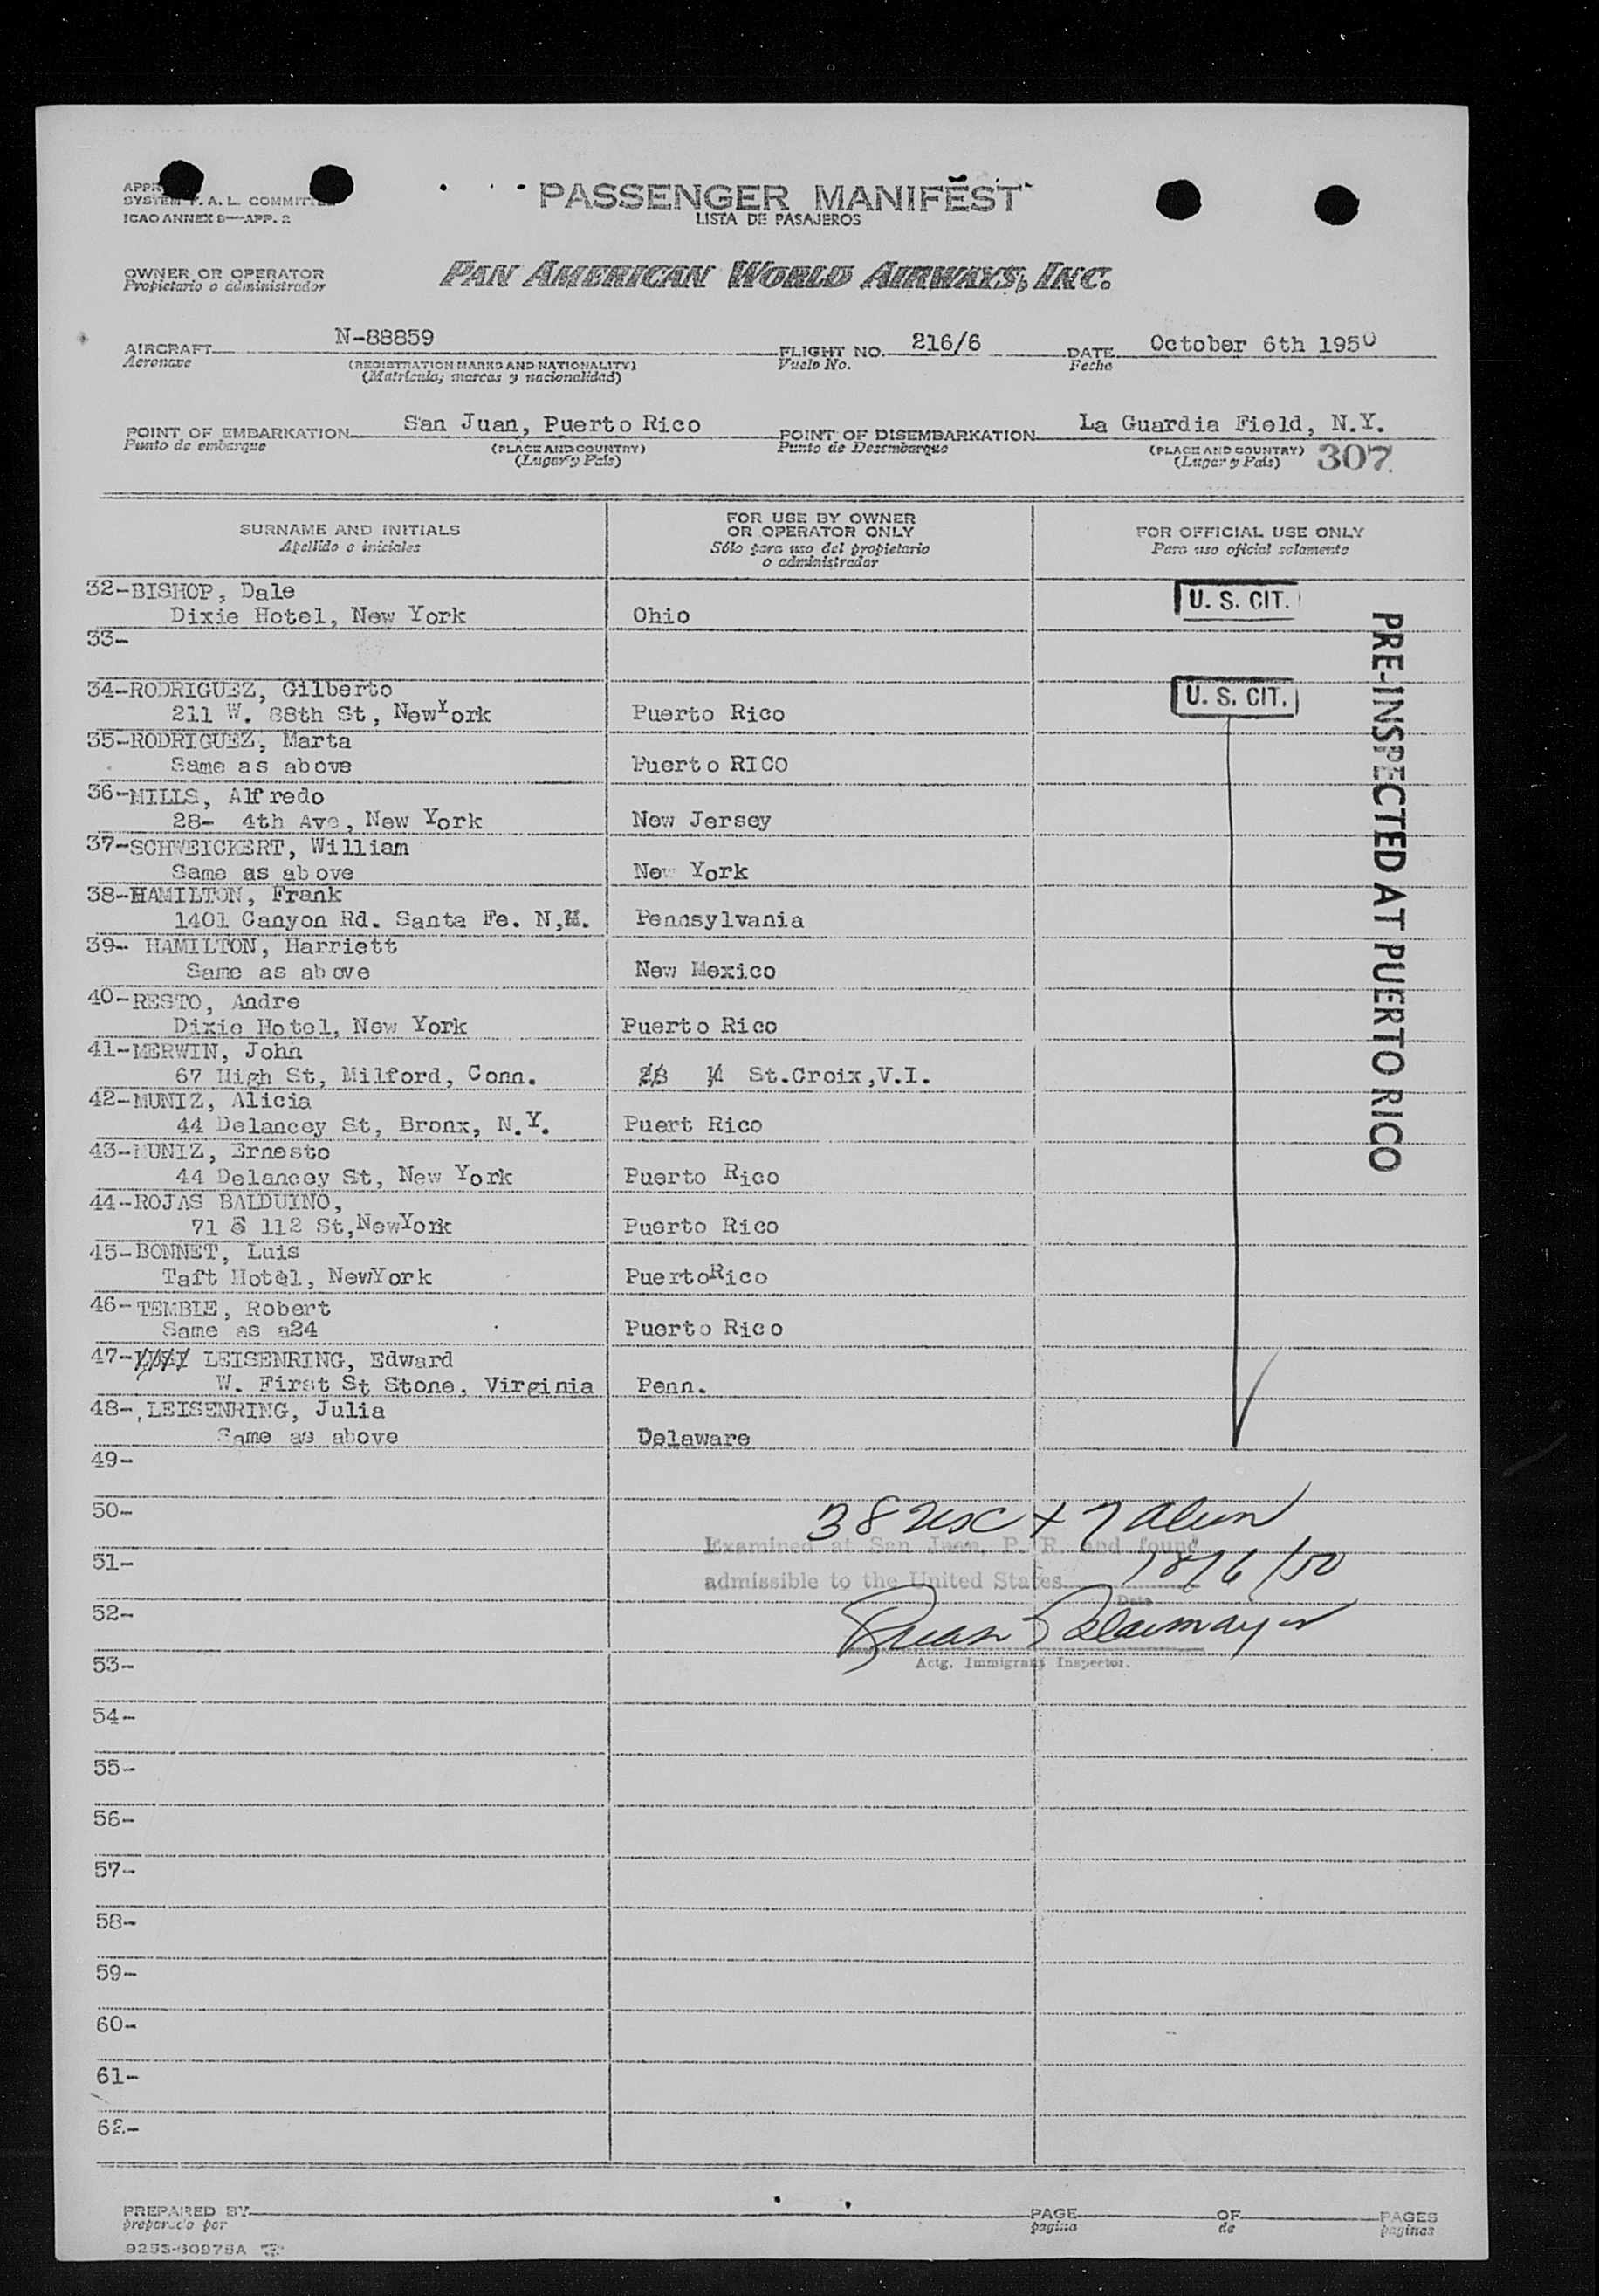 PASSENGER MANIFEST
LISTA DE PASAJEROS
SYSTEM F. A. L. COMMITTEE
ICAO ANNEX 9—APP. 2
OWNER OR OPERATOR
Propietario o administrador
PAN AMERICAN WORLD AIRWAYS, INC.
AIRCRAFT N-88859 FLIGHT NO. 216/6 DATE October 6th 1950
Aeronave (REGISTRATION MARKS AND NATIONALITY) Vuelo No. Fecha
(Matricula, marcas y nacionalidad)
POINT OF EMBARKATION San Juan, Puerto Rico POINT OF DISEMBARKATION La Guardia Field, N.Y.
Punto de embarque (PLACE AND COUNTRY) Punto de Desembarque (PLACE AND COUNTRY) 307
(Lugar y País) (Lugar y País)
SURNAME AND INITIALS
Apellido e iniciales
FOR USE BY OWNER
OR OPERATOR ONLY
Sólo para uso del propietario
o administrador
FOR OFFICIAL USE ONLY
Para uso oficial solamente
32-BISHOP, Dale U. S. CIT.
Dixie Hotel, New York Ohio
33-
34-RODRIGUEZ, Gilberto U. S. CIT.
211 W. 88th St, NewYork Puerto Rico
35-RODRIGUEZ, Marta
Same as above Puerto RICO
36-MILLS, Alfredo
28- 4th Ave, New York New Jersey
37-SCHWEICKERT, William
Same as above New York
38-HAMILTON, Frank
1401 Canyon Rd. Santa Fe. N,M. Pennsylvania
39- HAMILTON, Harriett
Same as above New Mexico
40-RESTO, Andre
Dixie Hotel, New York Puerto Rico
41-MERWIN, John
67 High St, Milford, Conn. St.Croix,V.I.
42-MUNIZ, Alicia
44 Delancey St, Bronx, N.Y. Puert Rico
43-MUNIZ, Ernesto
44 Delancey St, New York Puerto Rico
44-ROJAS BALDUINO,
71 112 St,NewYork Puerto Rico
45-BONNET, Luis
Taft Hotel, NewYork PuertoRico
46-TEMBLE, Robert
Same as a24 Puerto Rico
47- LEISENRING, Edward
W. First St Stone, Virginia Penn.
48-LEISENRING, Julia
Same as above Delaware
PRE-INSPECTED AT PUERTO RICO
49-
50-
38 USC + 7 Alien
Examined at San Juan, P. R. and found
51-
admissible to the United States 10/6/50
Date
52-
Actg. Immigrant Inspector.
53-
54-
55-
56-
57-
58-
59-
60-
61-
62-
PREPARED BY PAGE OF PAGES
preparado por pagina de paginas
9253-60975A